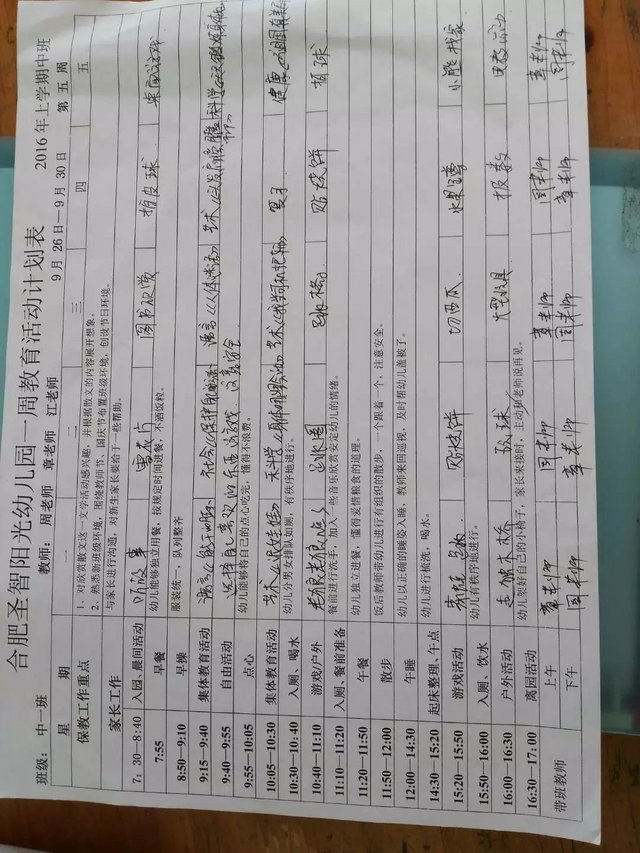 合肥圣智阳光幼儿园一周教育活动计划表
班级：中一班 教师：周老师 章老师 江老师 2016年上学期中班
9月26日—9月30日 第五周
星期 一 二 三 四 五
保教工作重点 1、对欣赏散文这一文学活动感兴趣，并根据散文的内容展开想象。
2、熟悉新班级环境，围绕教师节、国庆节布置班级环境，创设节日环境。
家长工作 与家长进行沟通，对新生家长要给于一些帮助。
7：30—8:40 入园、晨间活动 听故事 雪花片 图书阅读 拍皮球 桌面游戏
7:55 早餐 幼儿能够独立用餐，按规定时间进餐，不洒饭粒。
8:50—9:10 早操 服装统一，队列整齐
9:15—9:40 集体教育活动 语言 社会《保护 语言《 艺术《
9:40—9:55 自由活动 选择自己喜欢的东西游戏，注意安全
9:55—10:05 点心 幼儿能够将自己的点心吃完，懂得不浪费。
10:05—10:30 集体教育活动 艺术《 科学《 艺术《 复习 健康《
10:30—10:40 入厕、喝水 幼儿分男女排队如厕，有秩序地进行。
10:40—11:10 游戏/户外 老狼老狼几点了 跳圈 跳格子 贴烧饼 拍球
11:10—11:20 入厕、餐前准备 餐前进行洗手，加入一些音乐欣赏安定幼儿的情绪。
11:20—11:50 午餐 幼儿独立进餐，懂得爱惜粮食的道理。
11:50—12:00 散步 饭后教师带幼儿进行有组织的散步，一个跟着一个，注意安全。
12:00—14:30 午睡 幼儿以正确的睡姿入睡，教师来回巡视，及时帮幼儿盖被子。
14:30—15:20 起床整理、午点 幼儿进行梳洗，喝水。
15:20—15:50 游戏活动 贴烧饼 切西瓜 小熊找家
15:50—16:00 入厕、饮水 幼儿有秩序地进行。
16:00—16:30 户外活动 走独木桥 玩球 大型玩具 报数
16:30—17:00 离园活动 幼儿架好自己的小椅子，家长来接时，主动和老师说再见。
带班教师 上午 章老师 周老师 章老师 周老师 章老师
下午 周老师 章老师 周老师 章老师 周老师